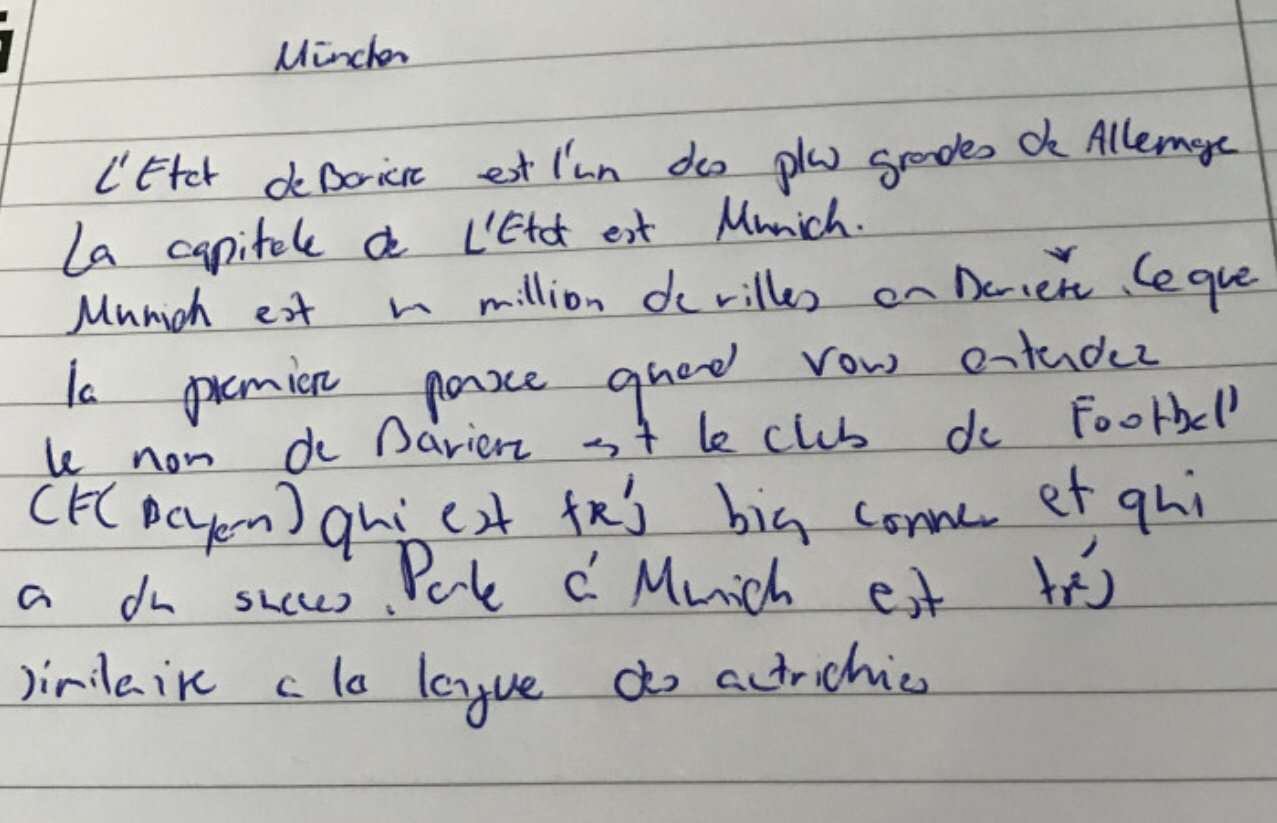 München
L'Etat de Baviere est l'un des plus grandes de Allemage
La capitale de L'Etat est Munich.
Munich est un million de villes en Baviere. Ce que
la premiere pensee quand vous entendez
le nom de Baviere est le club de Football
(FC Bayern) qui est trés bien connu et qui
a du succes. Parle á Munich est trés
similaire a la langue des autrichies